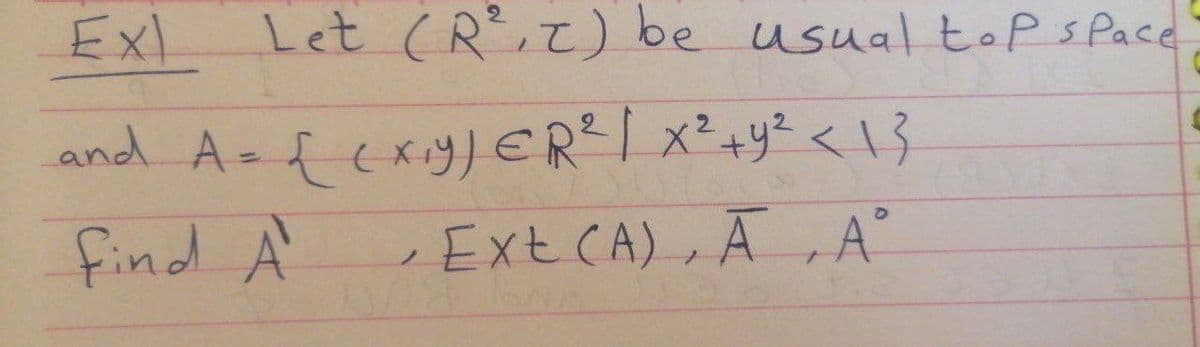 Ex1 Let (R², τ) be usual top space
and A = { (x,y) ∈ R² | x²+y² < 1}
find A' , Ext (A) , Ā , A°